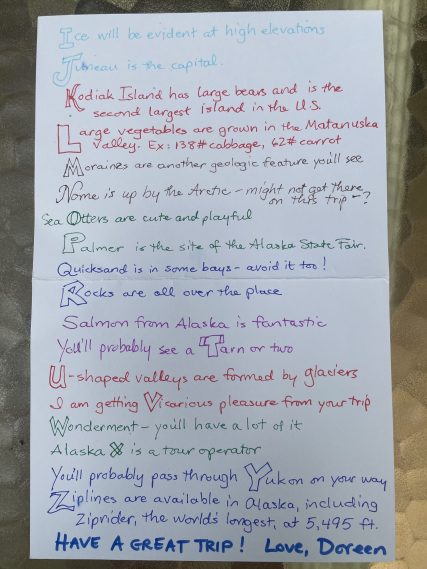 Ice will be evident at high elevations
Juneau is the capital.
Kodiak Island has large bears and is the
second largest island in the U.S.
Large vegetables are grown in the Matanuska
Valley. Ex: 138# cabbage, 62# carrot
Moraines are another geologic feature you'll see
Nome is up by the Arctic - might not get there
on this trip - ?
Sea Otters are cute and playful
Palmer is the site of the Alaska State Fair.
Quicksand is in some bays - avoid it too!
Rocks are all over the place
Salmon from Alaska is fantastic
You'll probably see a Tarn or two
U-shaped valleys are formed by glaciers
I am getting Vicarious pleasure from your trip
Wonderment - you'll have a lot of it
Alaska X is a tour operator
You'll probably pass through Yukon on your way
Ziplines are available in Alaska, including
Ziprider, the world's longest, at 5,495 ft.
HAVE A GREAT TRIP! Love, Doreen